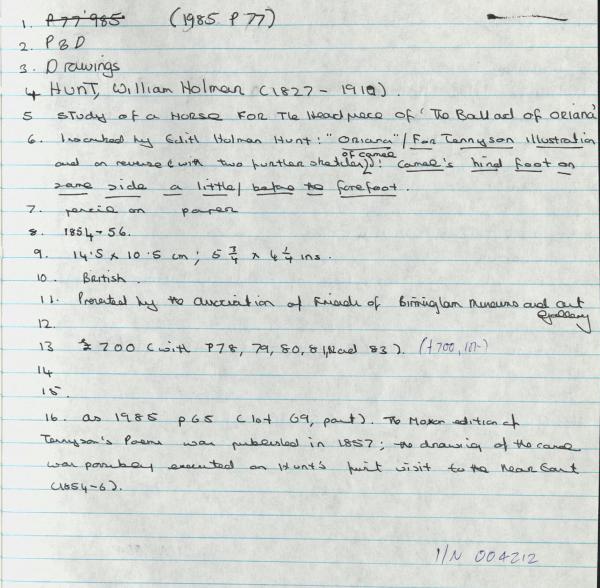 1. P 77'985 (1985 P 77)
2. P & D
3. Drawings
4 HUNT, William Holman (1827 - 1910).
5 STUDY OF A HORSE FOR The Headpiece OF 'The Ballad OF ORIANA'
6. Inscribed by Edith Holman Hunt: "ORIANA"/ FOR Tennyson Illustration
and on reverse (with two further sketches of camel): Camel's hind foot on
same side a little/ before the forefoot.
7. pencil on paper
8. 1854-56.
9. 14.5 x 10.5 cm; 5 3/4 x 4 1/4 ins.
10. British.
11. Presented by the Association of Friends of Birmingham Museums and Art Gallery
12.
13 £700 (with P78, 79, 80, 81, and 83). (£700, )
14
15.
16. as 1985 P65 (lot 69, part). The Moxon edition of
Tennyson's Poems was published in 1857; the drawing of the camel
was possibly executed on Hunt's first visit to the Near East
(1854-6).
I/N 004212